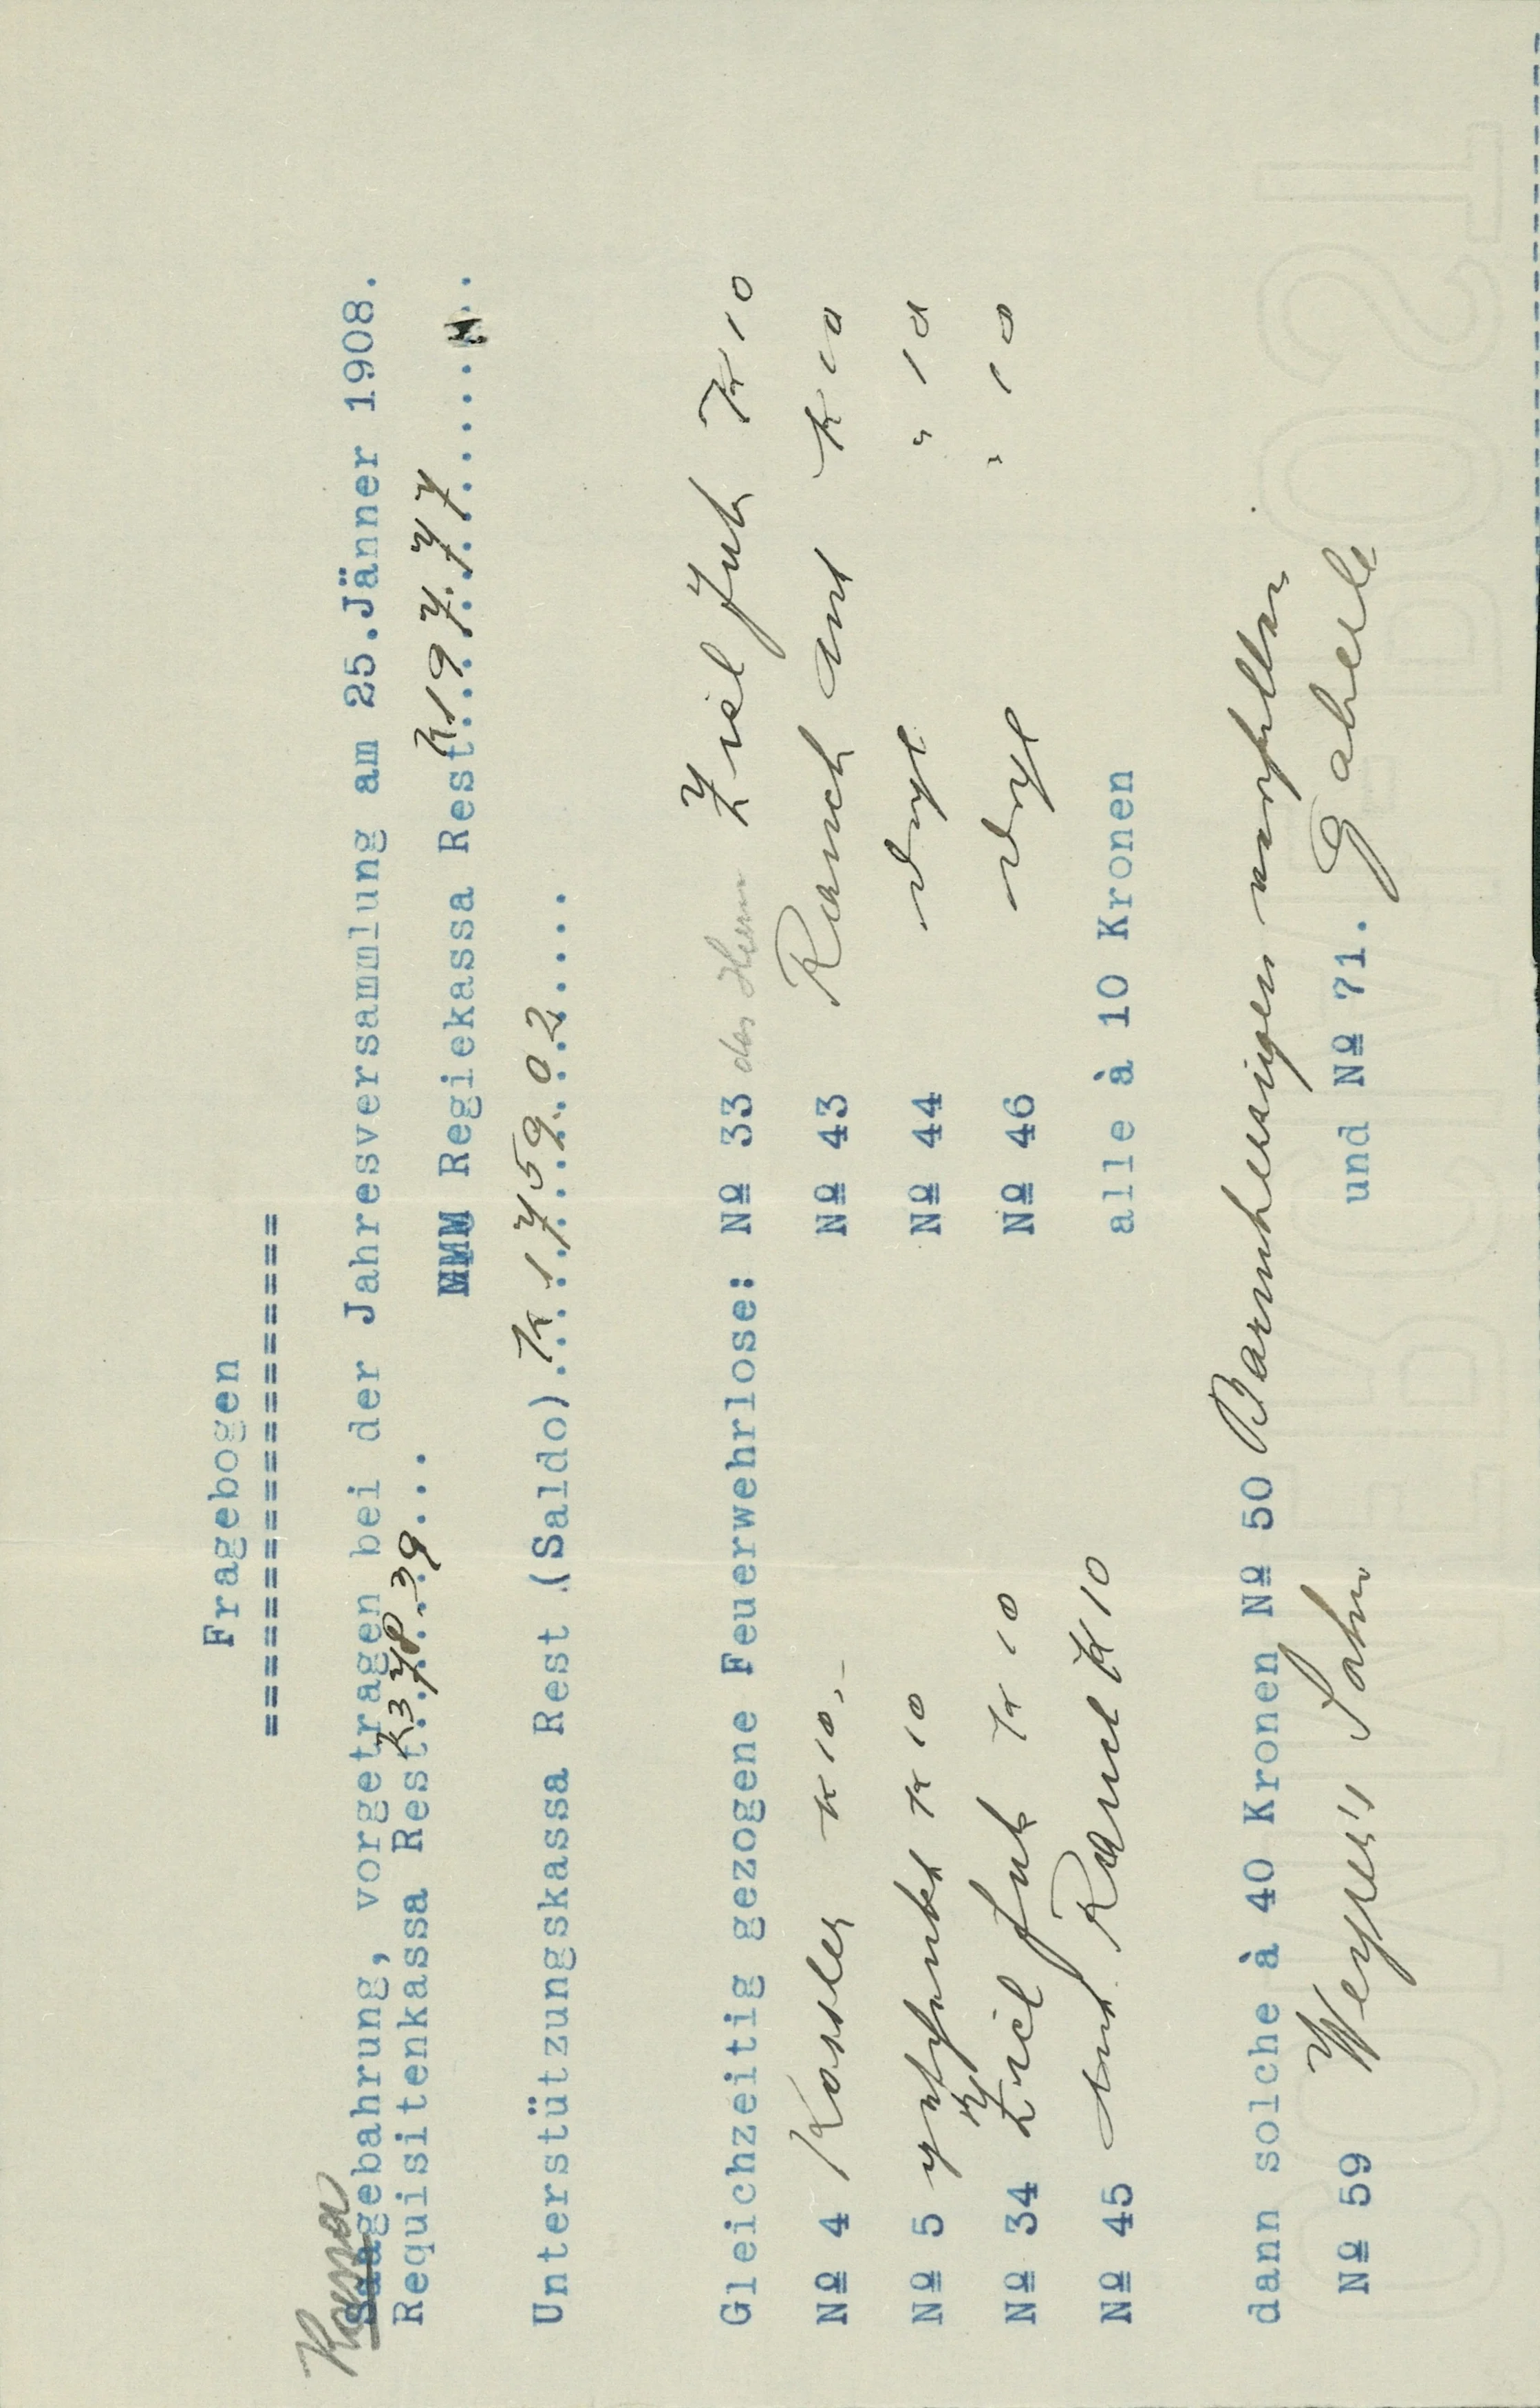 Fragebogen
===================
Kassa
Saagebahrung, vorgetragen bei der Jahresversammlung am 25.Jänner 1908.
Requisitenkassa Rest K 378.39 ... Regiekassa Rest K 197.77
Unterstützungskassa Rest (Saldo) K 1759.02
Gleichzeitig gezogene Feuerwehrlose: Nº 33 des Herrn Ziel Joh K 10
Nº 4 Kossler K 10.- Nº 43 Rauch Ant K 10
Nº 5 K 10 Nº 44 " 10
Nº 34 Ziel Joh K 10 Nº 46 " 10
Nº 45 Ant Rauch K 10 alle à 10 Kronen
dann solche à 40 Kronen Nº 50 Barmherzigen
Nº 59 Weyrer's Sohn und Nº 71. Gaberle
COMEROMTEDOST